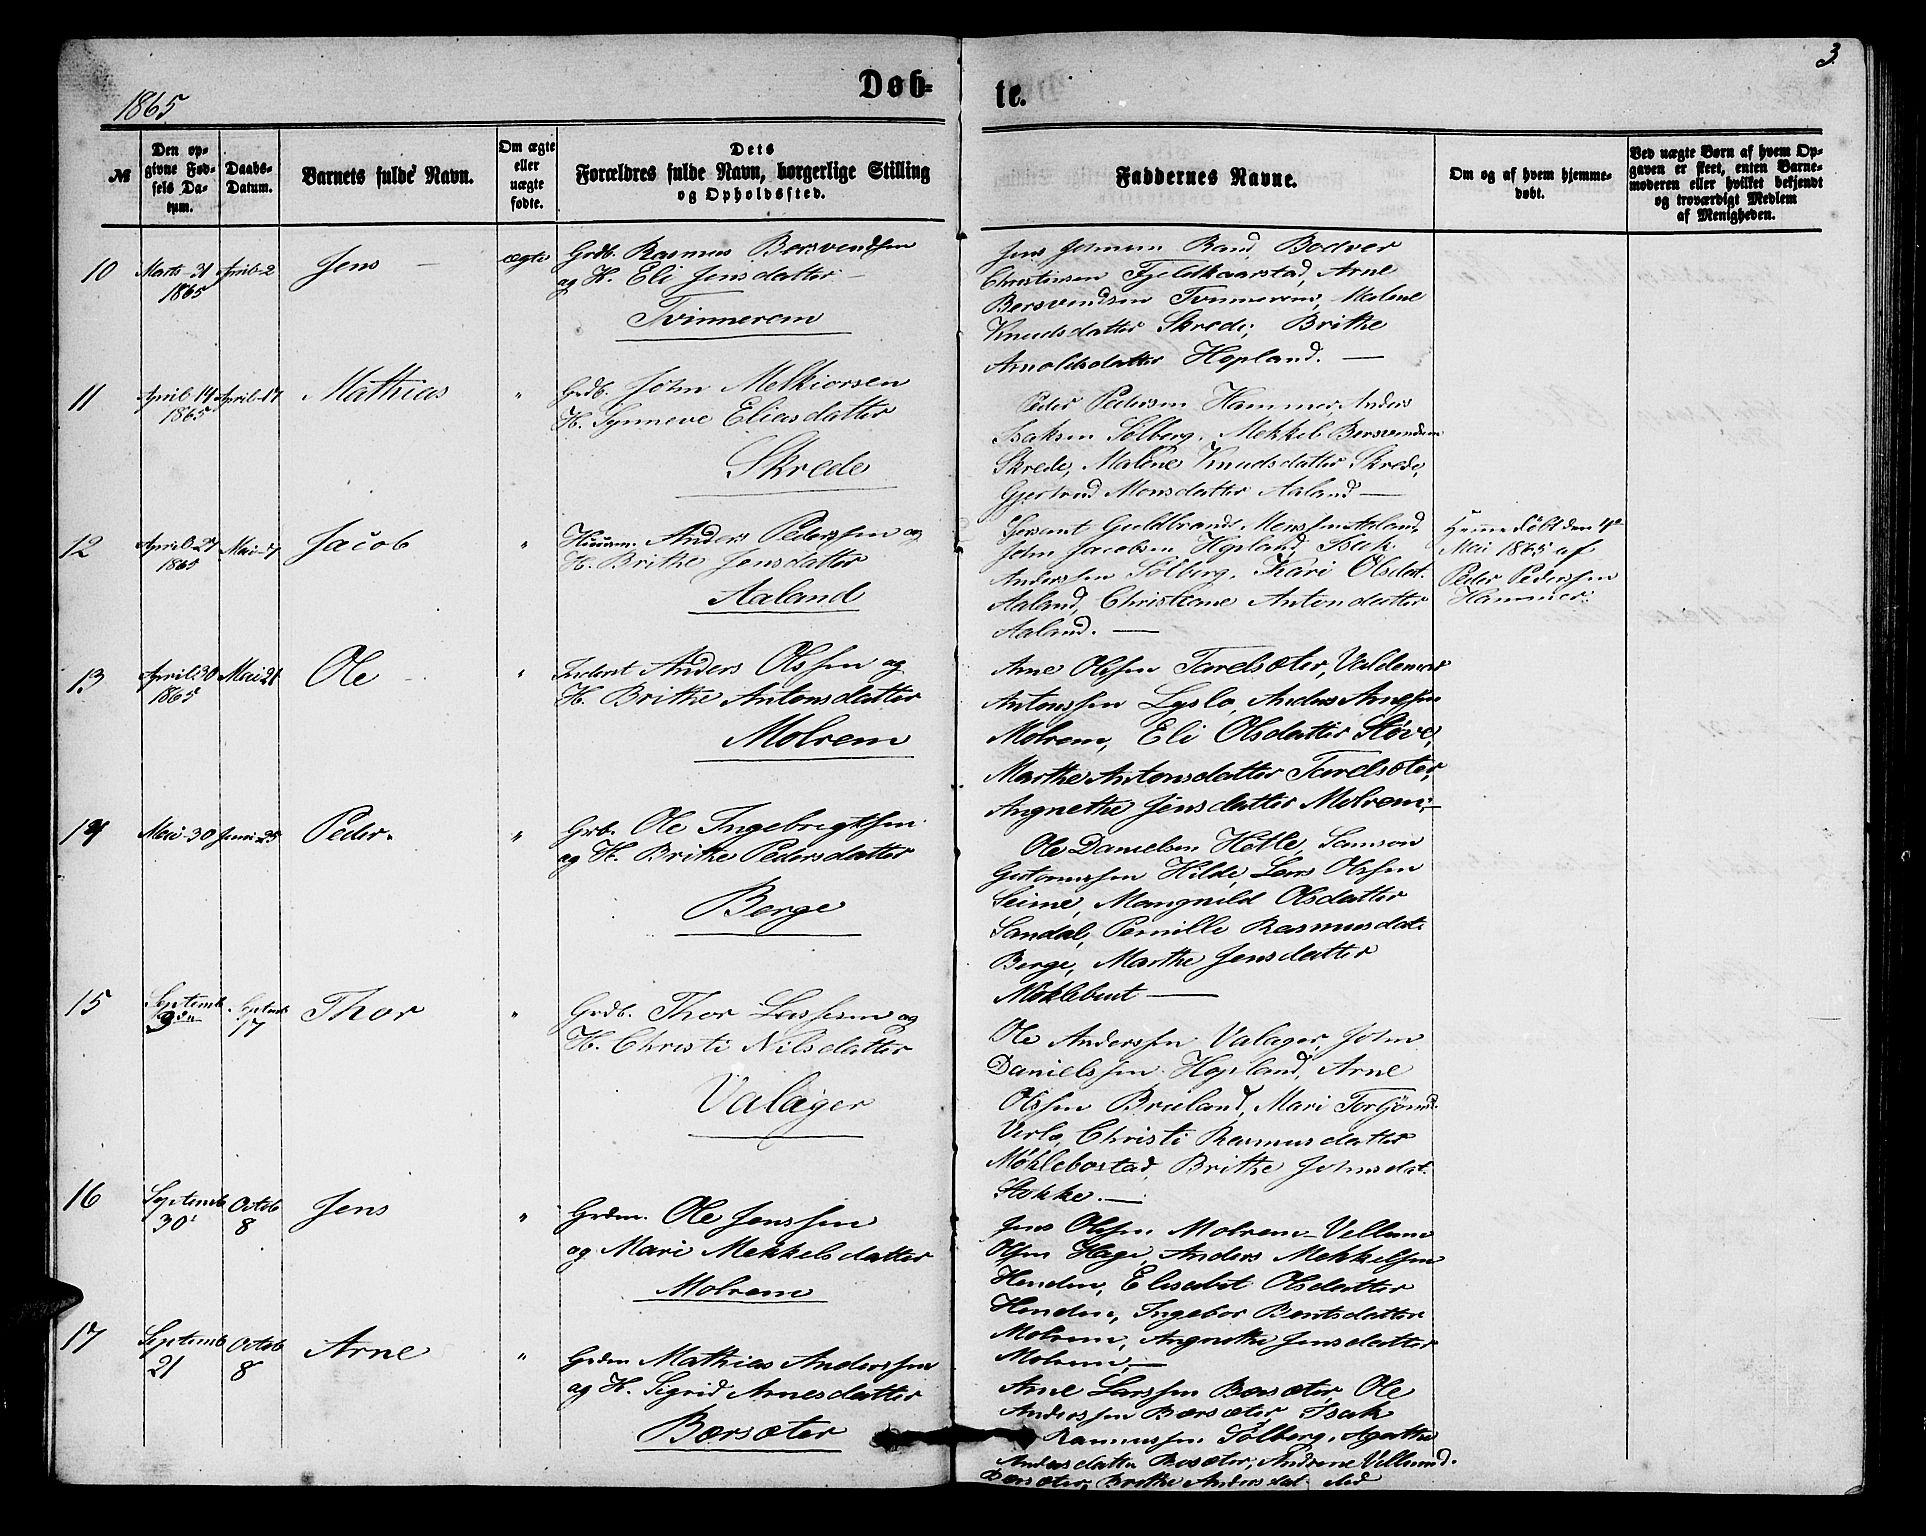 3
1865
Døb-
te.
№
Den op-
givne Fød-
sels Da-
tum.
Daabs-
Datum.
Barnets fulde Navn.
Om ægte
eller
uægte
fødte.
Dets
Forældres fulde Navn, borgerlige Stilling
og Opholdssted.
Faddernes Navne.
Om og af hvem hjemme-
døbt.
Ved uægte Børn af hvem Op-
gaven er skeet, enten Barne-
moderen eller hvilket bekjendt
og troværdigt Medlem
af Menigheden.
10
Marts 31
1865
April 2
Jens
ægte
Grdb. Rasmus Bersvendsen
og H. Eli Jensdatter
Tvinnerem
Jens Rand, Bodver
Christensen Fjeldkaarstad, Arne
Bersvendsen Tvinnerem, Malene
Knudsdatter Skrede, Brithe
Arnoldsdatter Hopland. —
11
April 14
1865
April 17
Mathias
"
Grdb. John Melkiorsen
H. Synneve Eliasdatter
Skrede
Peder Pedersen Hammer, Anders
Isaksen Solberg, Mekkel Bersvendsen
Skrede, Malene Knudsdatter Skrede,
Gjertrud Monsdatter Aaland —
12
April 27
1865
Mai 7
Jacob
"
Huusm. Anders Pederssen og
H. Brithe Jensdatter
Aaland
Guldbrand Monssen Aaland,
John Jacobsen Hopland, Isak
Anderssen Solberg, Kari Olsdat.
Aaland, Christiane Antondatter
Aaland. —
Hjemmedøbt den 4de
Mai 1865 af
Peder Pederssen
Hammer.
13
April 30
1865
Mai 21
Ole
"
Inderst Anders Olssen og
H. Brithe Antonsdatter
Molrem
Arne Olssen Tarelsæter, Valdemar
Antonssen Lyslo, Anders Arnessen
Molrem, Eli Olsdatter Støve,
Marthe Antonsdatter Tarelsæter,
Angnethe Jensdatter Molrem. —
14
Mai 30
Juni 25
Peder
"
Grb. Ole Ingebrigtsen
og H. Brithe Pedersdatter
Berge
Ole Danielsen Holle, Samson
Guttormssen Hilde, Lars Olssen
Seime, Mangnild Olsdatter
Sandal, Pernille Rasmusdat.
Berge, Marthe Jensdatter
Møklebust —
15
Septemb
3
Septemb
17
Thor
"
Grdb. Thor Larssen og
H. Christi Nilsdatter
Valager
Ole Anderssen Valager, John
Danielssen Hopland, Arne
Olssen Bruland, Mari Torgjerd.
Verlo, Christi Rasmusdatter
Møklebostad, Brithe Johnsdat.
Stokke. —
16
Septemb
30
Octob
8
Jens
"
Grdm. Ole Jenssen
og Mari Mekkelsdatter
Molrem
Jens Olssen Molrem, Vellum
Olsen Hage, Anders Mekkelsen
Henden, Elisabet Olsdatter
Henden, Ingebor Bentsdatter
Molrem, Angnethe Jensdatter
Molrem. —
17
Septemb
21
Octob
8
Arne
"
Grdm Mathias Anderssen
og H. Sigrid Arnesdatter
Børsæter
Arne Larssen Børsæter, Ole
Anderssen Børsæter, Isak
Rasmussen Solberg, Agathe
Andersdatter Bosæter, Andrene Vellumd.
Børsæter, Brithe Andersdat.